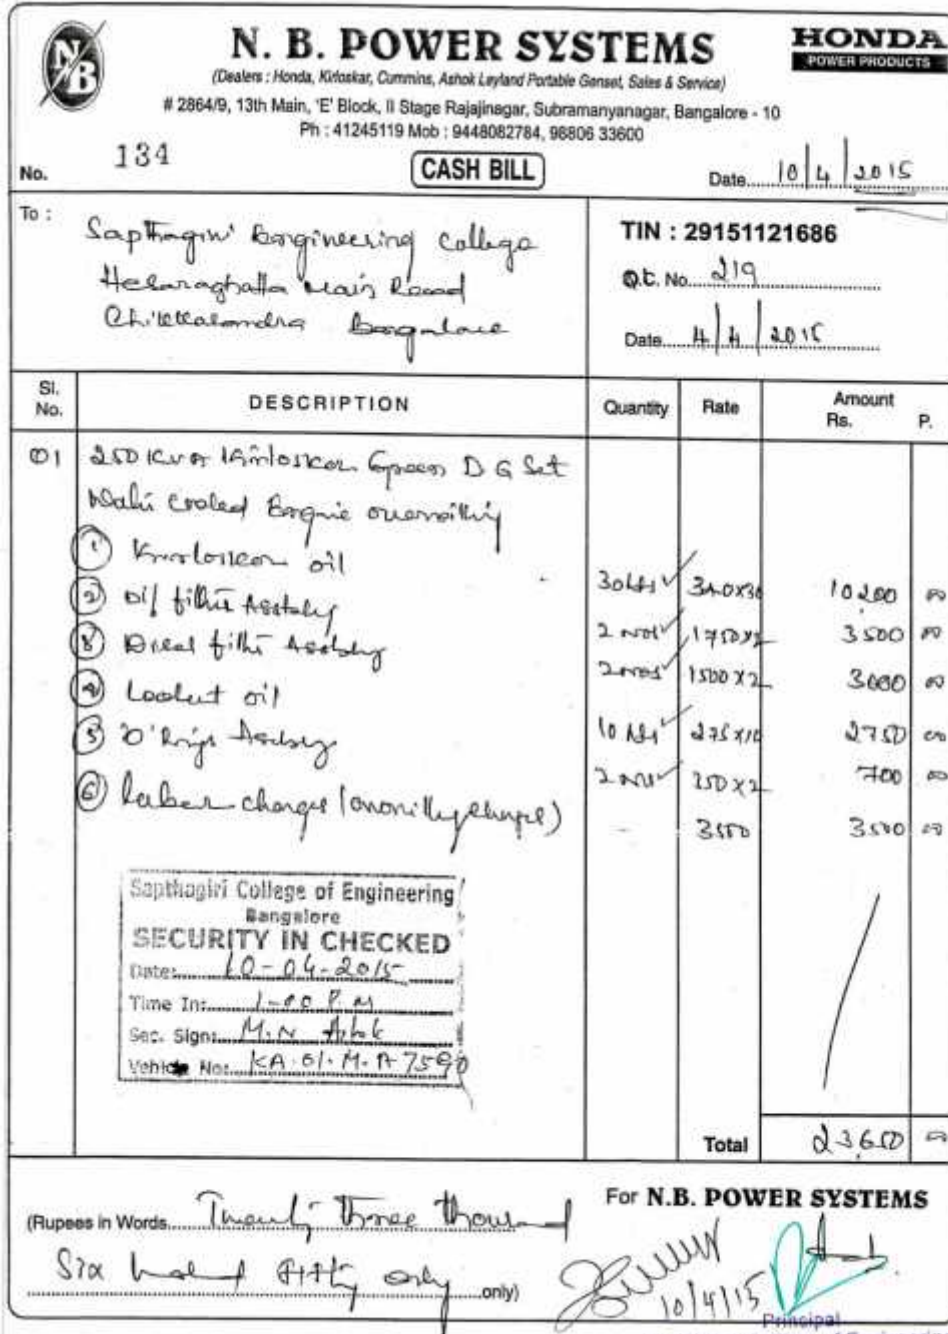 N
B
N. B. POWER SYSTEMS
HONDA
POWER PRODUCTS
(Dealers : Honda, Kirloskar, Cummins, Ashok Leyland Portable Genset, Sales & Service)
# 2864/9, 13th Main, 'E' Block, II Stage Rajajinagar, Subramanyanagar, Bangalore - 10
Ph : 41245119 Mob : 9448082784, 98806 33600
No. 134
CASH BILL
Date 10/4/2015
To :
Sapthagiri Engineering College
Hesaraghatta Main Road
Chikkasandra Bangalore
TIN : 29151121686
D.C. No. 219
Date 4/4/2015
Sl. No. DESCRIPTION Quantity Rate Amount Rs. P.
01 250 KVA Kirloskar Green D G Set
Cooled Engine
1 Kirloskar oil 30 Lts 340x30 10200 00
2 Oil filter 2 nos 1750x2 3500 00
3 filter 2 nos 1500x2 3000 00
4 oil 10 Lts 275x10 2750 00
5 'O' Rings 2 nos 350x2 700 00
6 Labour charges - 3500 3500 00
Sapthagiri College of Engineering
Bangalore
SECURITY IN CHECKED
Date: 10-04-2015
Time In: 1-00 P.M
Sec. Sign: M.N Ashok
Vehicle No: KA-01-M-A 7590
Total 23650 00
(Rupees in Words Twenty Three Thousand
Six hundred fifty only only)
For N.B. POWER SYSTEMS
10/4/15
Principal